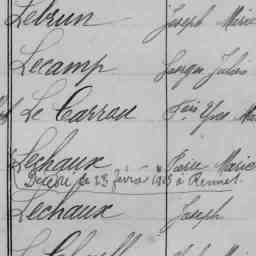 Lebrun Joseph Marie
Lecamp Georges Julien
Le Carrou Fois Yves Ma
Lechaux Pierre Marie
Décédé le 23 février 1903 à Rennes.
Lechaux Joseph